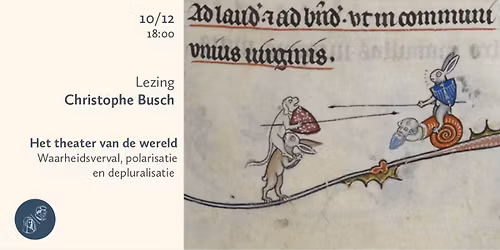 10/12
18:00
Lezing
Christophe Busch
Het theater van de wereld
Waarheidsverval, polarisatie
en depluralisatie
Ad laud⁊ ad bñd. vt in communi
vnius uirginis.